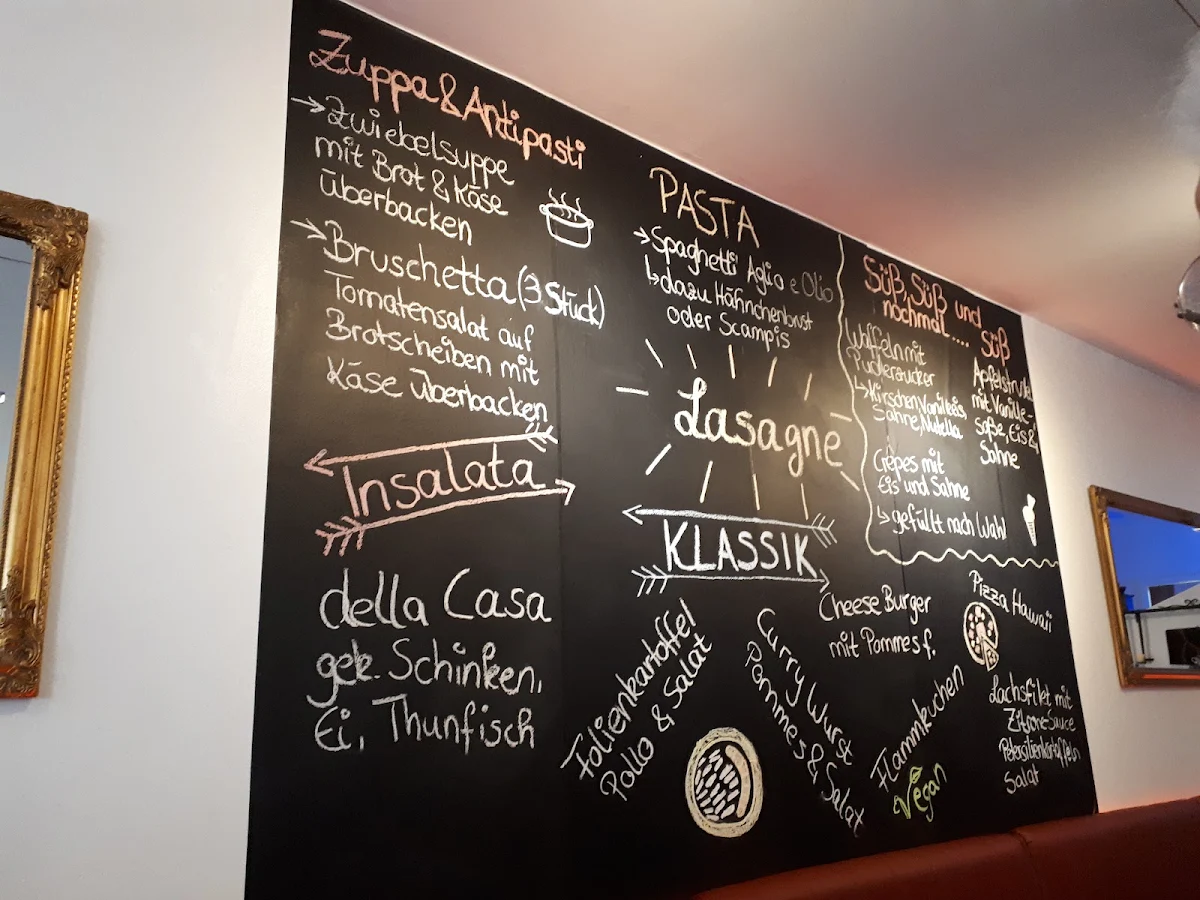 Zuppa & Antipasti
→ Zwiebelsuppe
mit Brot & Käse
überbacken
→ Bruschetta (3 Stück)
Tomatensalat auf
Brotscheiben mit
Käse überbacken
Insalata
della Casa
gek. Schinken,
Ei, Thunfisch
PASTA
→ Spaghetti Aglio e Olio
↳ dazu Hähnchenbrust
oder Scampis
Lasagne
KLASSIK
Folienkartoffel
Pollo & Salat
Curry Wurst
Pommes & Salat
Cheese Burger
mit Pommes f.
Flammkuchen
Vegan
Pizza Hawaii
Lachsfilet mit
Zitronesauce
Petersilienkartoffeln
Salat
Süß, Süß und
nochmal.... Süß
Waffeln mit
Puderzucker
↳ Kirschen, Vanilleeis,
Sahne, Nutella
Crêpes mit
Eis und Sahne
↳ gefüllt nach Wahl
Apfelstrudel
mit Vanille-
soße, Eis &
Sahne